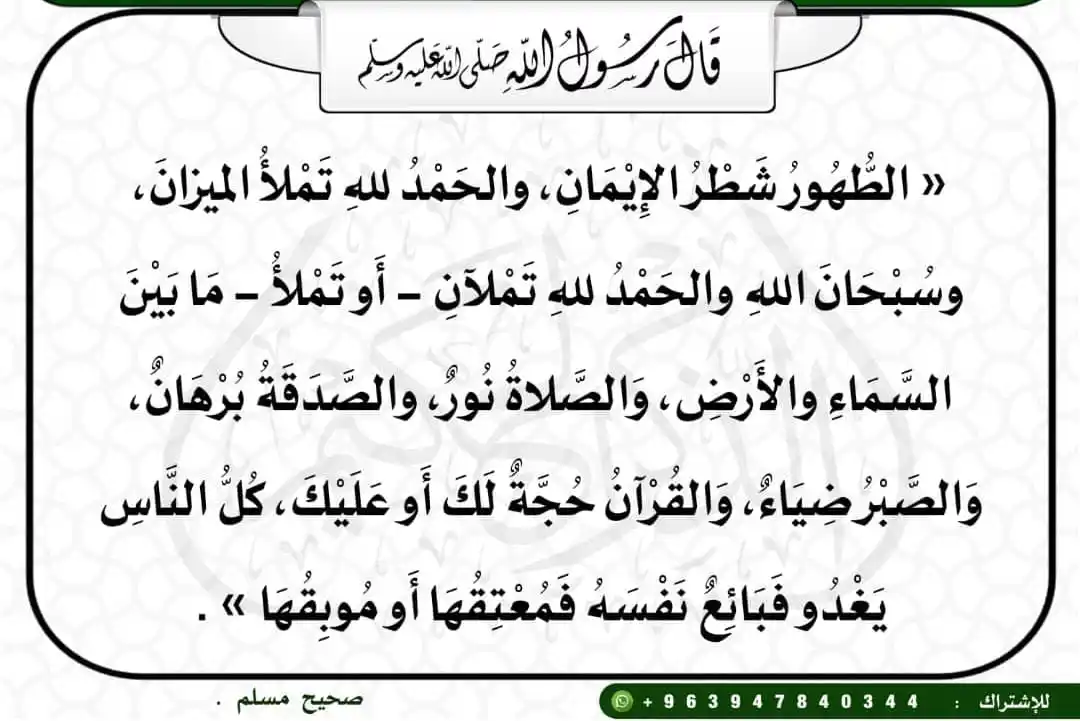 قَالَ رَسُولُ اللّٰهِ صَلَّى اللّٰهُ عَلَيْهِ وَسَلَّم
« الطُّهُورُ شَطْرُ الإِيْمَانِ، والحَمْدُ للهِ تَمْلأُ الميزانَ،
وسُبْحَانَ اللهِ والحَمْدُ للهِ تَمْلآنِ – أَو تَمْلأُ – مَا بَيْنَ
السَّمَاءِ والأَرْضِ، وَالصَّلاةُ نُورٌ، والصَّدَقَةُ بُرْهَانٌ،
وَالصَّبْرُ ضِيَاءٌ، وَالقُرْآنُ حُجَّةٌ لَكَ أَو عَلَيْكَ، كُلُّ النَّاسِ
يَغْدُو فَبَائِعٌ نَفْسَهُ فَمُعْتِقُهَا أَو مُوبِقُهَا » .
للإشتراك : + 9 6 3 9 4 7 8 4 0 3 4 4
صحيح مسلم .